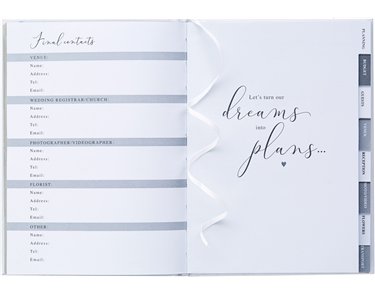 Final contacts
VENUE:
Name:
Address:
Tel:
Email:
WEDDING REGISTRAR/CHURCH:
Name:
Address:
Tel:
Email:
PHOTOGRAPHER/VIDEOGRAPHER:
Name:
Address:
Tel:
Email:
FLORIST
Name:
Address:
Tel:
Email:
OTHER
Name:
Address:
Tel:
Email:
Let's turn our
dreams
into
plans...
PLANNING
BUDGET
GUESTS
VENUE
RECEPTION
FLOWERS